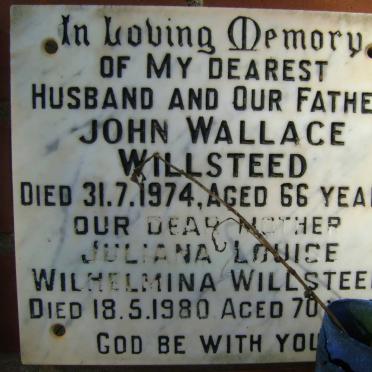 In Loving Memory
OF MY DEAREST
HUSBAND AND OUR FATHE
JOHN WALLACE
WILLSTEED
DIED 31.7.1974, AGED 66 YEA
OUR DEAR MOTHER
JULIANA LOUISE
WILHELMINA WILLSTEE
DIED 18.5.1980 AGED 70
GOD BE WITH YOU